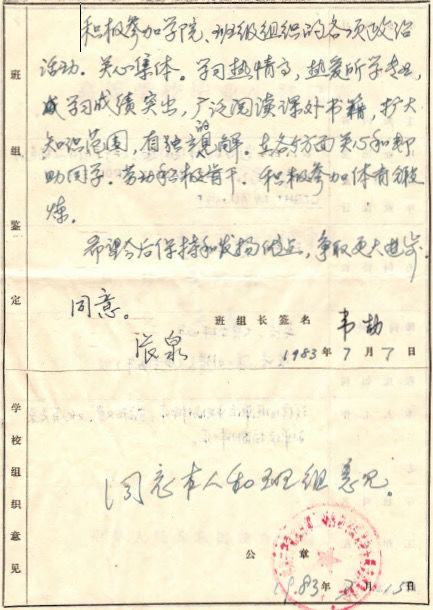 积极参加学院、班级组织的各项政治
活动。关心集体。学习热情高,热爱所学专业,
学习成绩突出,广泛阅读课外书籍,扩大
知识范围,有独立的见解。在各方面关心和帮
助同学。劳动积极肯干。积极参加体育锻
炼。
希望今后保持和发扬优点,争取更大进步。
班组鉴定
同意。
班组长签名 韦勃
1983年7月7日
学校组织意见
同意本人和班组意见。
公章
1983年 月15日